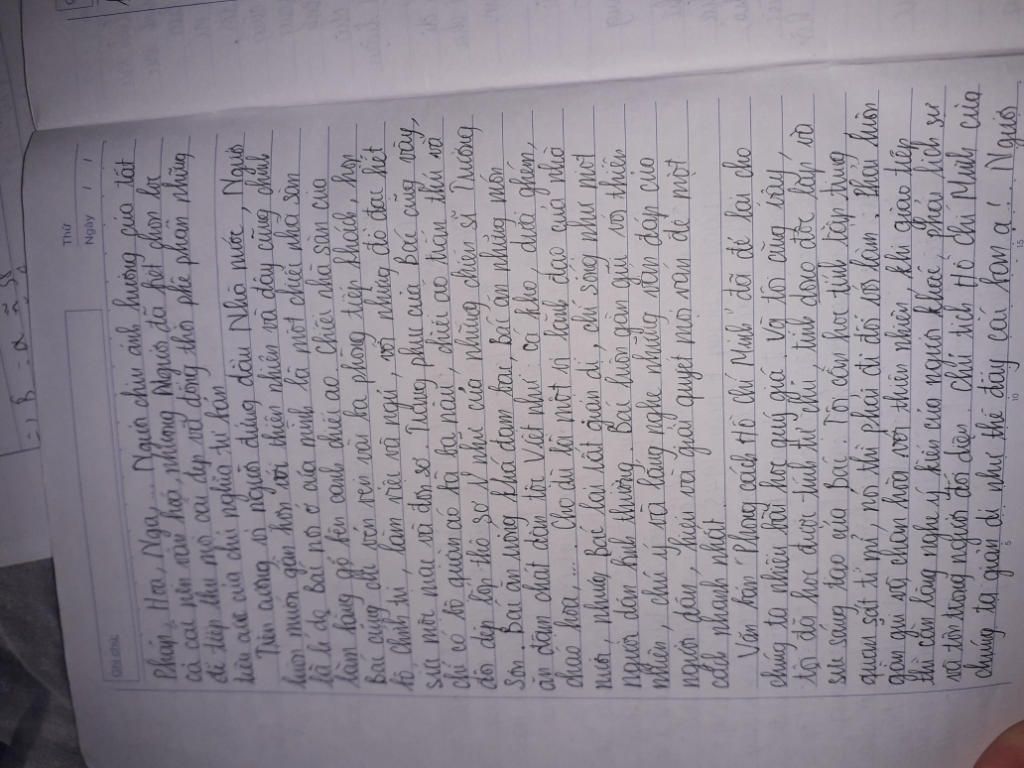 Thứ
Ngày / /
pháp, Hoa, Nga,.... Người chịu ảnh hưởng của tất
cả các nền văn hóa, nhưng Người đã biết chọn lọc
để tiếp thu mọi cái đẹp và đồng thời phê phán những
tiêu cực của chủ nghĩa tư bản.
Trên cương vị người đứng đầu Nhà nước, Người
luôn muốn gần hòa với thiên nhiên và đây cũng chính
là lí do Bác nơi ở của mình là một chiếc nhà sàn
làm bằng gỗ kên cạnh chiếc ao. Chiếc nhà sàn của
Bác cũng chỉ vón vẹn vài ba phòng tiếp khách, họp
bộ chính trị, làm việc và ngủ, với những đồ đạc hết
sức mộc mạc và đơn sơ. Trang phục của Bác cũng vậy,
chỉ có bộ quần áo bà ba nâu, chiếc áo trấn thủ và
đôi dép lốp thô sơ như của những chiến sĩ Trường
Sơn. Bác ăn uống khá đạm bạc, Bác ăn những món
ăn đậm chất dân tộc Việt như: cá kho, dưa ghém,
cháo hoa,.... Cho dù là một vị lãnh đạo của nhà
nước, nhưng Bác lại rất giản dị, chỉ sống như một
người dân bình thường. Bác luôn gần gũi với thiên
nhiên, chú ý và lắng nghe những vấn đáp của
người dân, hiểu và giải quyết mọi vấn đề một
cách nhanh nhất.
Văn bản "Phong cách Hồ Chí Minh" đã để lại cho
chúng ta nhiều bài học quý giá. Và tôi cũng vậy,
tôi đã học được tính tự chủ, tính độc lập và
sự sáng tạo của Bác. Tôi cần học tính tập trung
quan sát tỉ mỉ, nó thì phải đi đôi với làm. Phải luôn
gần gũi và chan hòa với thiên nhiên khi giao tiếp
thì cần lắng nghe ý kiến của người khác, phải lịch sự
và tôn trọng người đối diện. Chủ tịch Hồ Chí Minh của
chúng ta giản dị như thế đấy các bạn ạ! Người